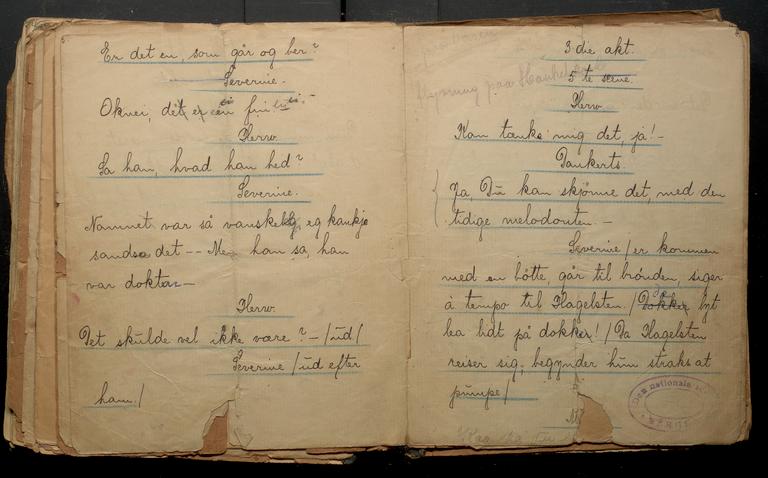 Er det en, som går og ber?
Severine.
Oknei, det er ein fin
Herw.
Sa han, hvad han hed?
Severine.
Namnet var så vanskelig, eg kankje
sandse det -- Men han sa, han
var dokter -
Herw.
Det skulde vel ikke være? - /ud/
Severine /ud efter
ham./
3 die akt.
5 te scene.
Herw.
Kan tænke mig det, ja! -
Dankerts.
Ja, Du kan skjønne det, med den
tidige melodonten. -
Severine /er kommen
med en bøtte, går til brønden, siger
à tempo til Hagelsten. / De lyt
lea lidt på dokker! / Da Hagelsten
reiser sig, begynder hun straks at
pumpe/
Den nationale